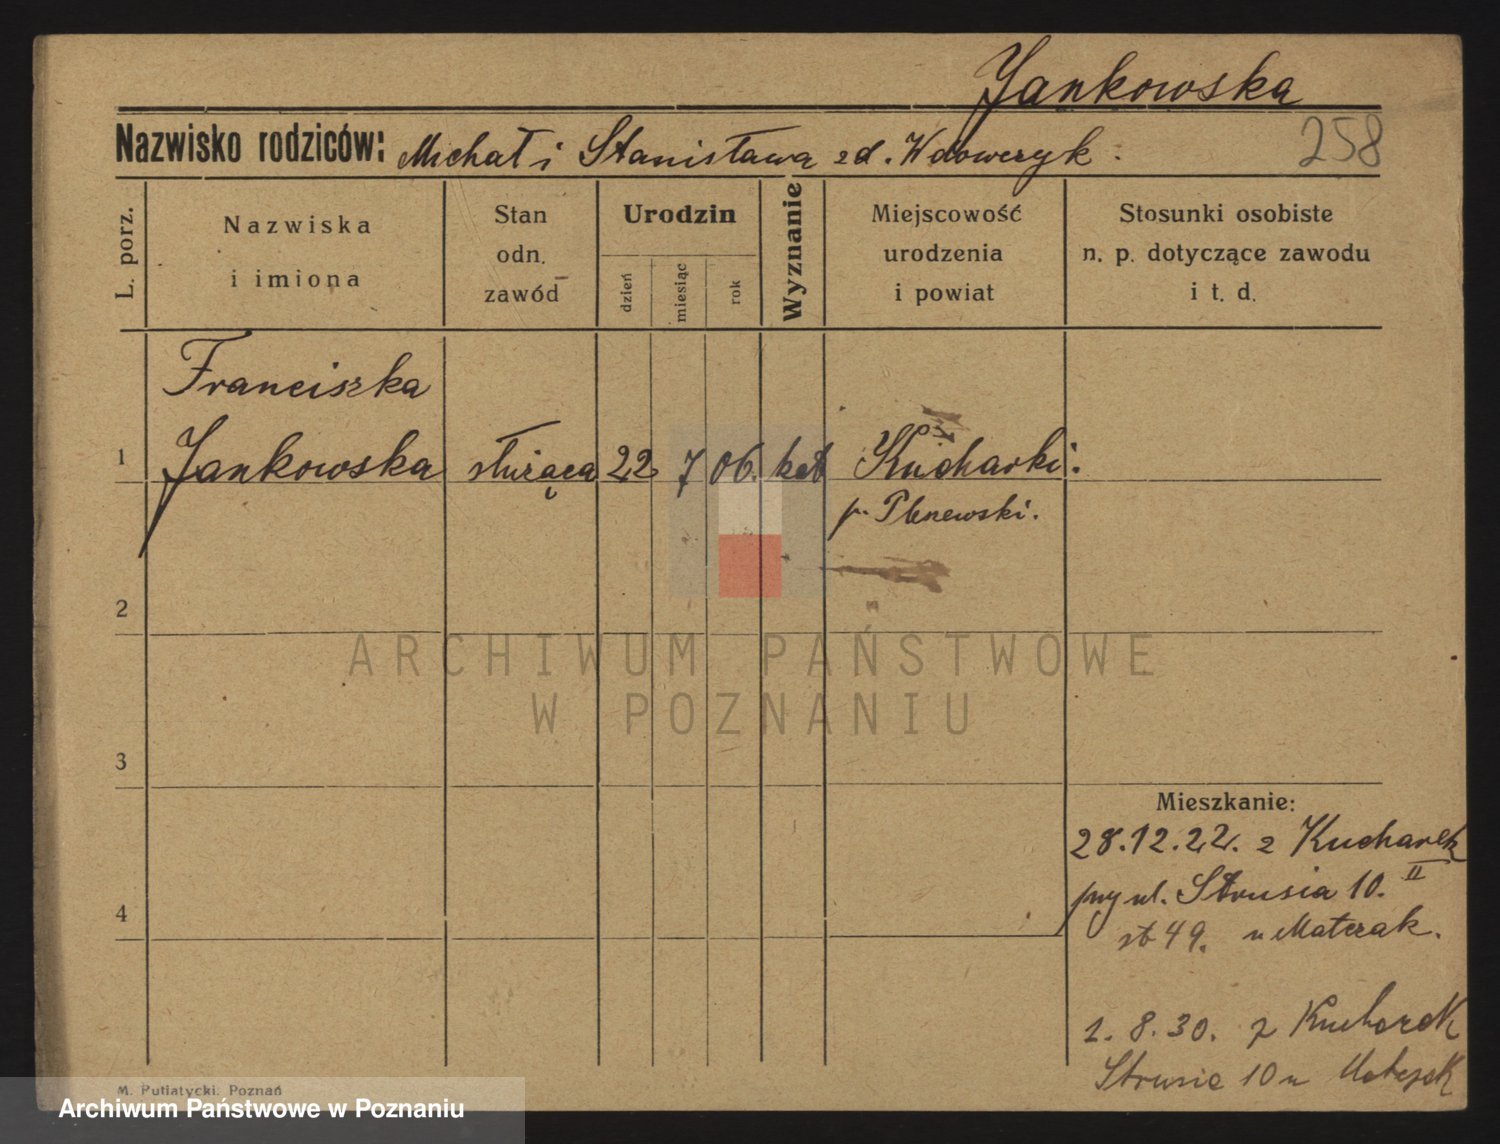 Jankowska
Nazwisko rodziców: Michał i Stanisława zd. Wdowczyk.
258
L. porz.
Nazwiska
i imiona
Stan
odn.
zawód
Urodzin
dzień
miesiąc
rok
Wyznanie
Miejscowość
urodzenia
i powiat
Stosunki osobiste
n. p. dotyczące zawodu
i t. d.
Franciszka
1 Jankowska służąca 22 7 06. kat Kucharki.
p. Plszewski.
2
ARCHIWUM PAŃSTWOWE
W POZNANIU
3
Mieszkanie:
28.12.22. z Kucharek
przy ul. Strusia 10. II
4
st 49. u Materak.
1. 8. 30. z Kucharek
Strusia 10 u
M. Putiatycki. Poznań
Archiwum Państwowe w Poznaniu